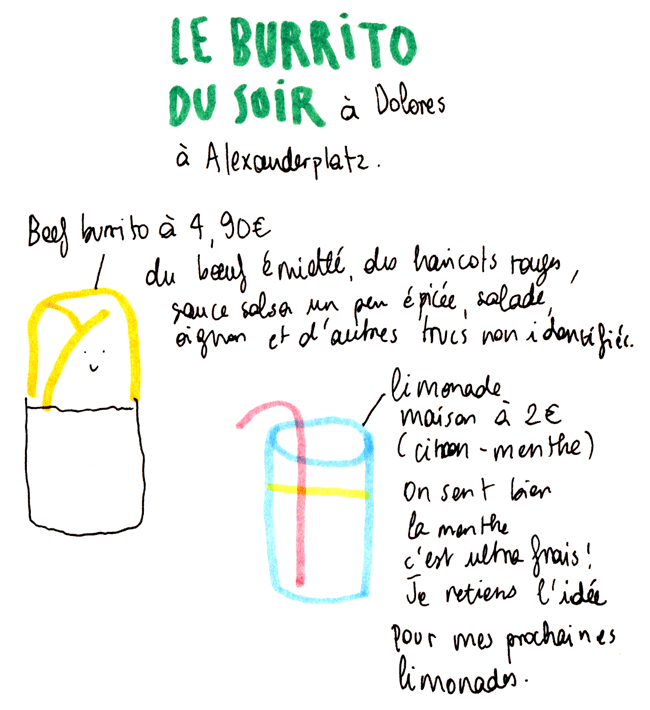 LE BURRITO
DU SOIR à Dolores
à Alexanderplatz.
Beef burrito à 4,90€
du bœuf émietté, des haricots rouges,
sauce salsa un peu épicée, salade,
oignon et d'autres trucs non identifiés.
limonade
maison à 2€
(citron-menthe)
On sent bien
la menthe
c'est ultra frais!
Je retiens l'idée
pour mes prochaines
limonades.